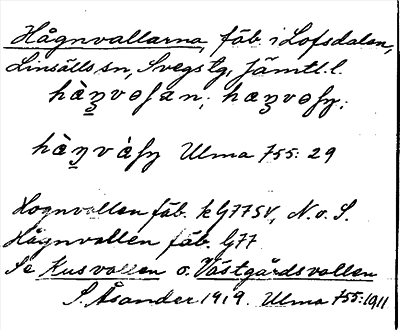 Hågnvallarna, fäb. i Lofsdalen,
Linsälls sn, Svegs tg, Jämtl. l.
Ulma 755: 29
Hognvallen fäb. k G77SV, N. o. S.
Hågnvallen fäb. G77
Se Kusvallen o. Västgårdsvallen
S. Åsander 1919. Ulma 755: 1911